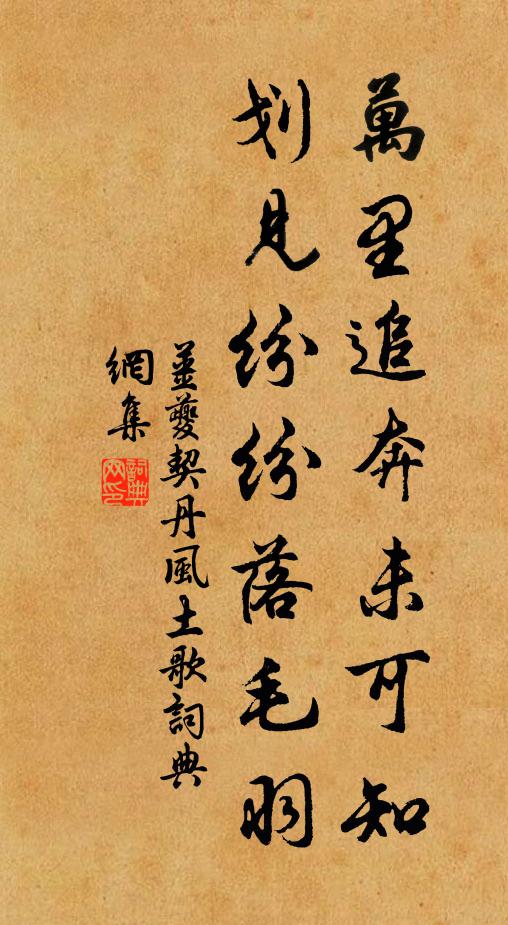 萬里追奔未可知
划見紛紛落毛羽
姜夔契丹風土歌詞典
網集
詞典
网印